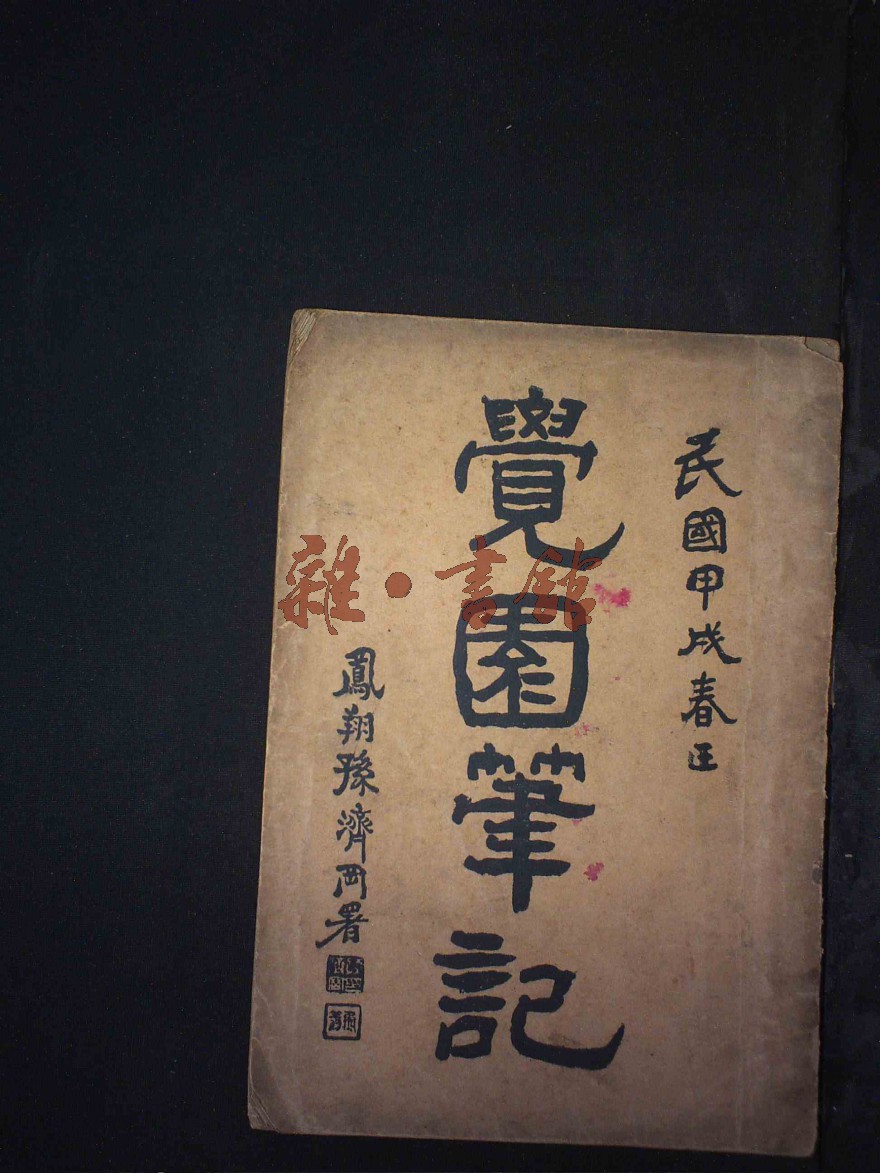 民國甲戌春正
覺園筆記
鳳翔
濟
署
雜·書館